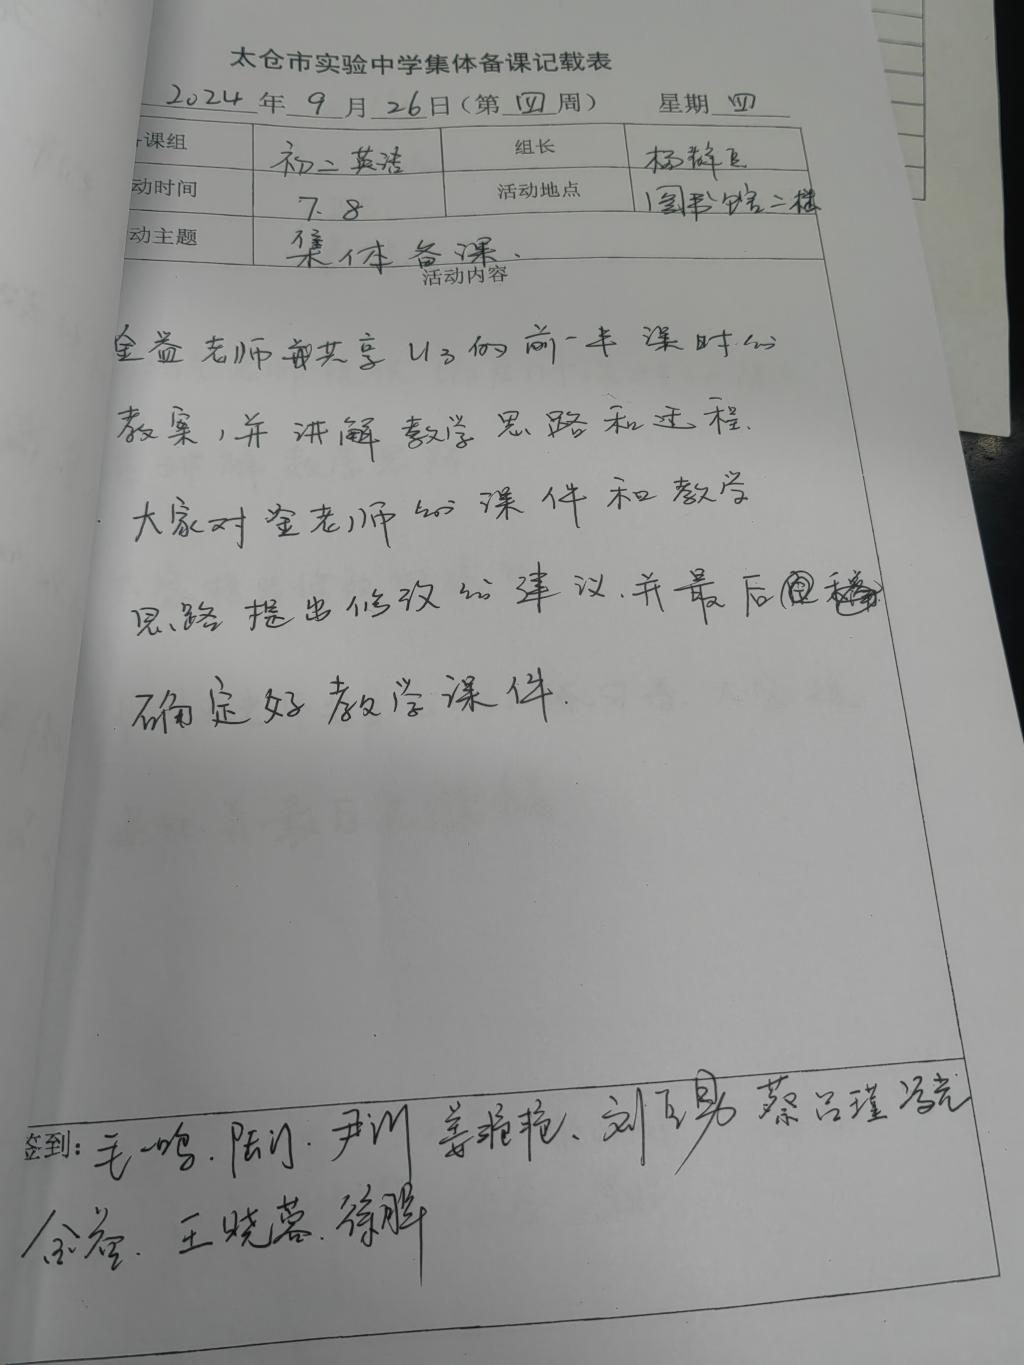 太仓市实验中学集体备课记载表
2024年 9 月 26 日(第 四 周) 星期 四
课组 初二英语 组长 杨
动时间 7.8 活动地点 图书馆二楼
动主题 集体备课.
活动内容
金益老师共享U3的前一半课时的
教案,并讲解教学思路和过程.
大家对金老师的课件和教学
思路提出修改的建议.并最后
确定好教学课件.
签到: 毛一鸣. 尹训 姜艳艳、刘 蔡吕瑾
金益. 王晓蓉. 徐